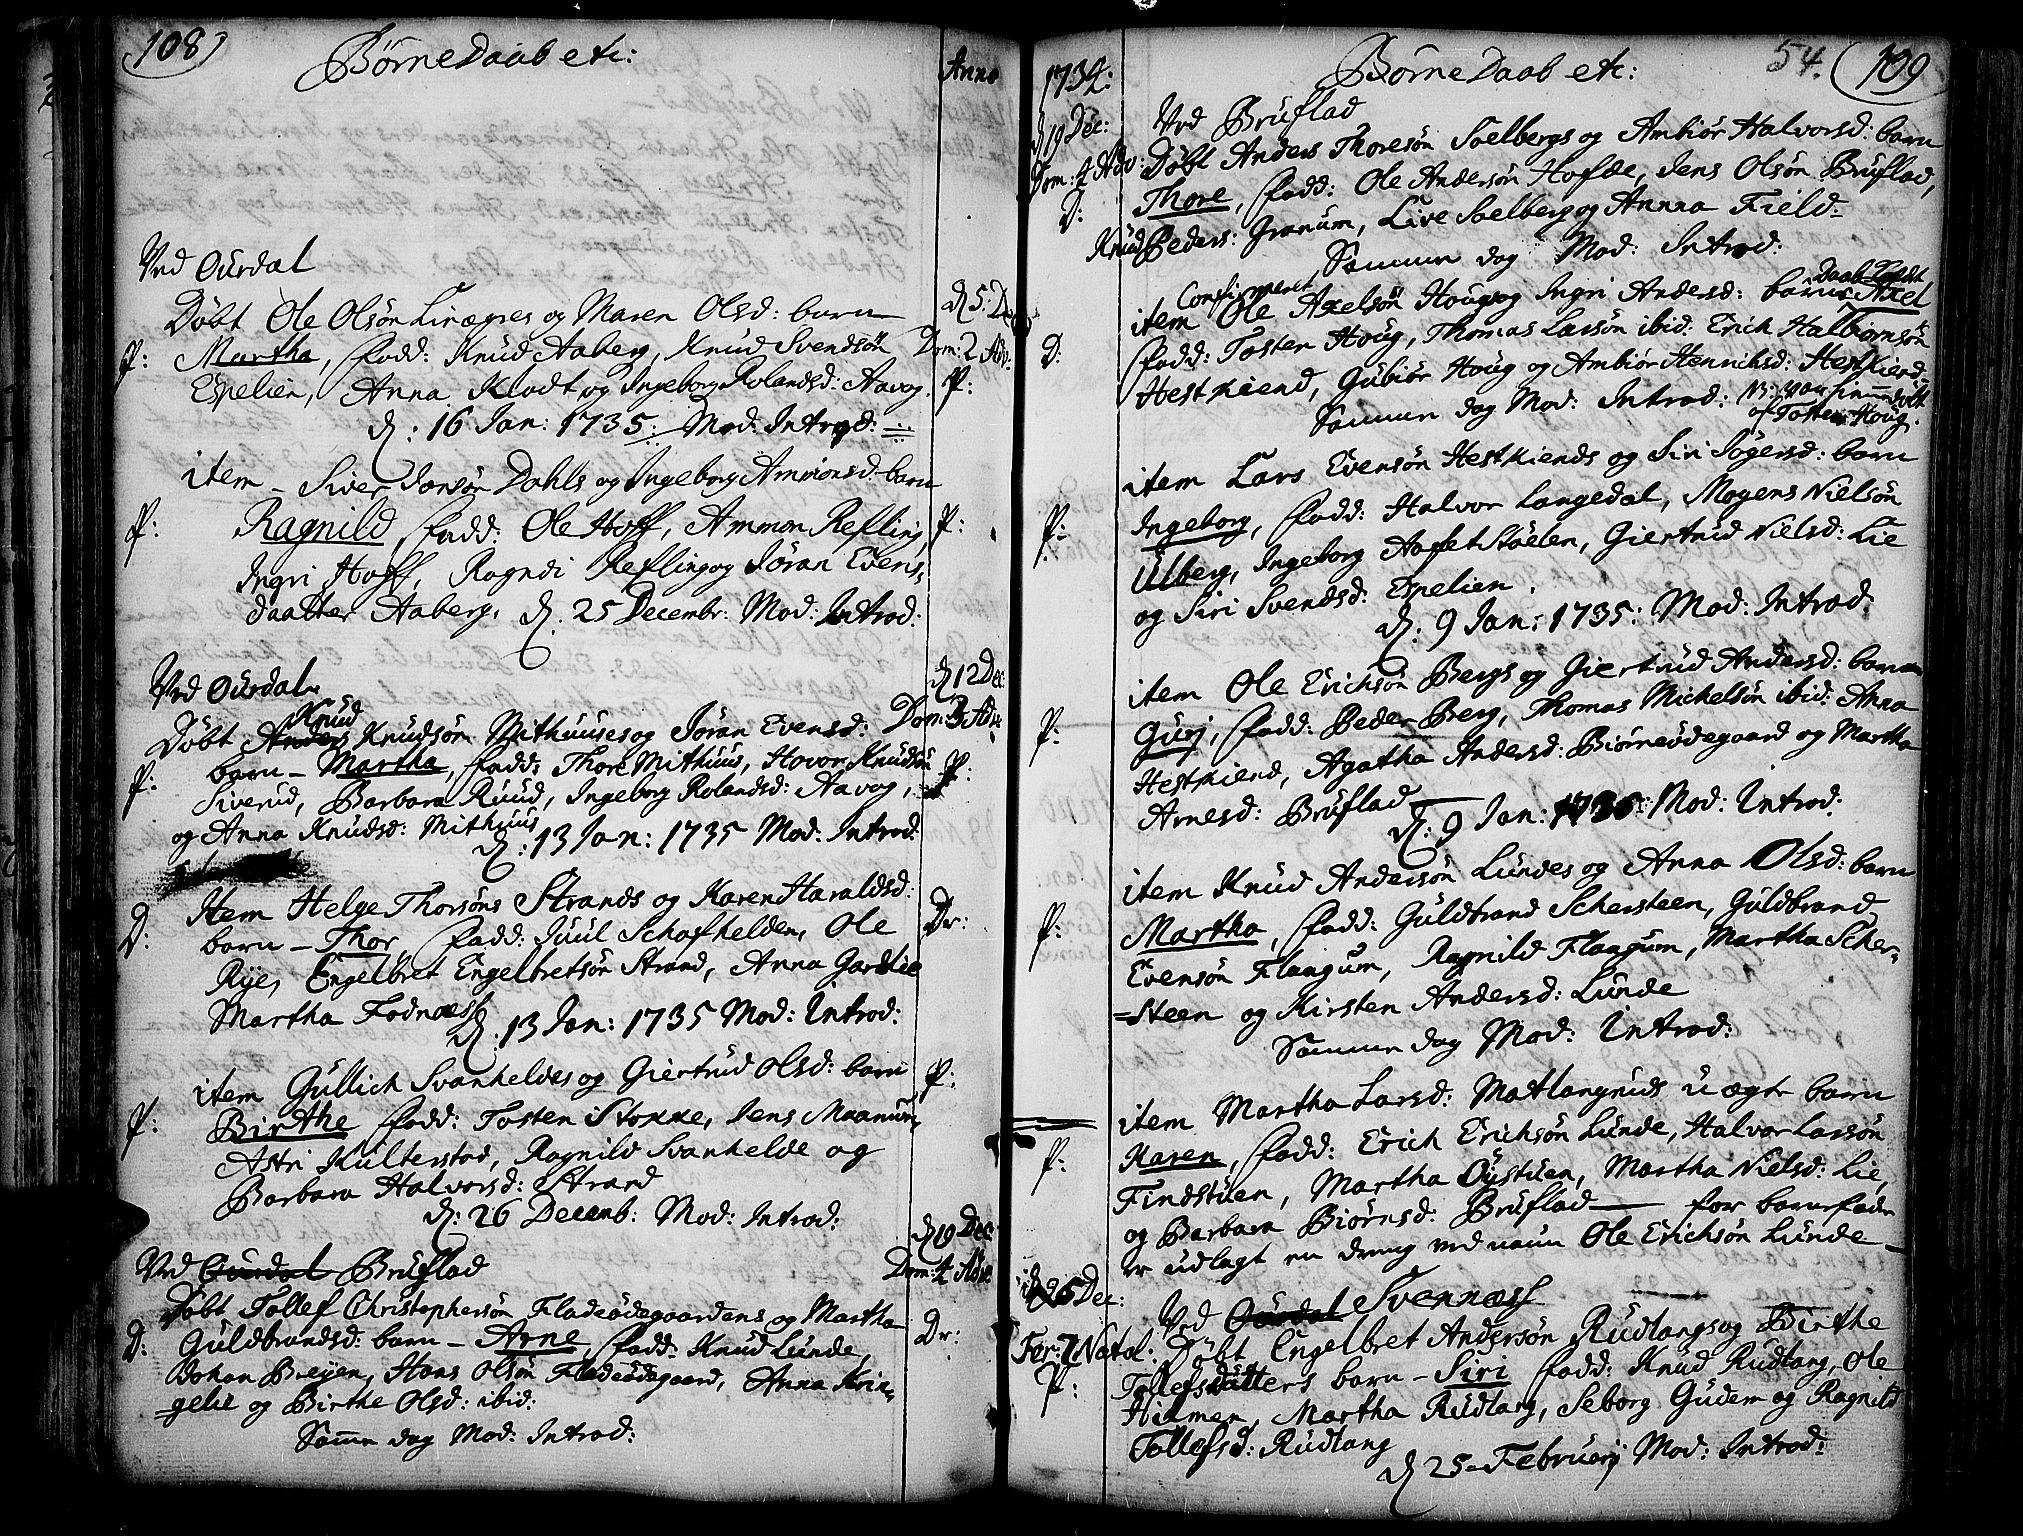 108)
Børne Daab etc:
Anno
Ved Ourdal
d 5: De
Døbt Ole Olsøn Linægres og Maren Olsd: barn
Dom: 2 Adv:
P: Martha, fadd: Knud Aaberg, Knud Svendsøn
P:
Espelien, Anna Klodt og Ingeborg Rolandsd: Aavog
d: 16 Jan: 1735: Mod: Introd:
item Siver Jonsøn Dahls og Ingeborg Ammonsd: barn
P: Ragnild, fadd: Ole Hoff, Ammon Refling,
P:
Ingri Hoff, Ragndi Refling og Jøran Evens-
daatter Aaberg. d. 25 Decembr: Mod: Introd:
Ved Ourdal
d 12 Dec:
Knud
Dom: 3 Adv:
Døbt Anders Knudsøn Mithuuses og Jøran Evensd:
P: barn - Martha, fadd: Thore Mithuus, Hovor Knudsøn
P:
Siverud, Barbara Ruud, Ingeborg Rolandsd: Aavog,
og Anna Knudsd: Mithuus
d: 13 Jan: 1735 Mod: Introd:
Item Helge Thorsøns Strands og Karen Haraldsd:
D: barn - Thor, fadd: Juul Schafhelden, Ole
Dr:
Rye, Engelbret Engelbretsøn Strand, Anna Gardlie
Martha Fodnæss
d. 13 Jan: 1735 Mod: Introd:
item Gullich Svanheldes og Giertrud Olsd: barn
P:
P: Birthe fadd: Tosten Stokke, Jens Maanum,
Astri Kulterstad, Ragnild Svanhelde og
Barbara Halvorsd: Strand
d: 26 Decemb: Mod: Introd:
d 19 Dec:
Ved Ourdal Bruflad
Dom: 4 Adv:
Døbt Tollef Christophersøn Fladeødegaardens og Martha
D: Guldbrandsd: barn - Arne, fadd: Knud Lunde,
Dr:
Johan Breyen, Hans Olsøn Fladeødegaard, Anna Krin-
-gelie og Birthe Olsd: ibid:
Samme dag Mod: Introd:
1734:
Børne Daab etc:
54.
(109
d 19 Dec:
Ved Bruflad
Dom: 4 Adv:
Døbt Anders Thoresøn Soelbergs og Ambiør Halvorsd: barn
D:
Thore, fadd: Ole Andersøn Hofde, Jens Olsøn Bruflad,
Knud Peders: Granum, Live Soelberg og Annna Field:
Sammen dag Mod: Introd:
Confirmeret
Daab
item Ole Axelsøn Hougs og Ingri Andersd: barns Axel
D:
fadd: Tosten Houg, Thomas Larsøn ibid: Erich Halbornsøn
Hestkiend, Gubiør Houg og Ambiør Henrichsd: Hestkiend
Sammen dag Mod: Introd:
N: var hiemmedøbt
af Tosten Houg.
item Lars Evensøn Hestkiends og Siri Jøgersd: barn
P: Ingeborg, fadd: Halvor Langedal, Mogens Nielsøn
Ulberg, Ingeborg Aasetstøelen, Giertrud Nielsd: Lie
og Siri Svendsd: Espelien.
d: 9 Jan: 1735: Mod: Introd:
item Ole Erichsøn Bergs og Giertrud Andersd: barn
P: Gurj, fadd: Peder Berg, Thomas Michelsøn ibid: Anna
Hestkiend, Agatha Andersd: Biørneødegaard og Martha
Arnesd: Bruflad
d: 9 Jan: 1735: Mod: Introd:
item Knud Andersøn Lundes og Anna Olsd: barn
P: Martha, fadd: Guldbrand Schersteen, Guldbrand
Evensøn Flangum, Ragnild Flangum, Martha Scher-
=steen og Kirsten Andersd: Lunde
Sammen dag Mod: Introd:
item Martha Larsd: Matlangruds uægte barn
P: Karen, fadd: Erich Erichsøn Lunde, Halvor Larsøn
Findstuen, Martha Øystuen, Martha Nielsd: Lie,
og Barbara Biørnsd: Bruflad - for barnefader
er udlagt en dreng ved navn Ole Erichsøn Lunde
d 26 Dec:
Ved Ourdal Svennæss
Fer: 2 Natal:
Døbt Engelbret Andersøn Rudlangs og Birthe
P:
Tollefsdatters barn - Siri fadd: Knud Rudlang, Ole
Hiemen, Martha Rudlang, Seborg Gudem og Ragnild
Tollefsd: Rudlang
d 25 Februarj Mod: Introd: